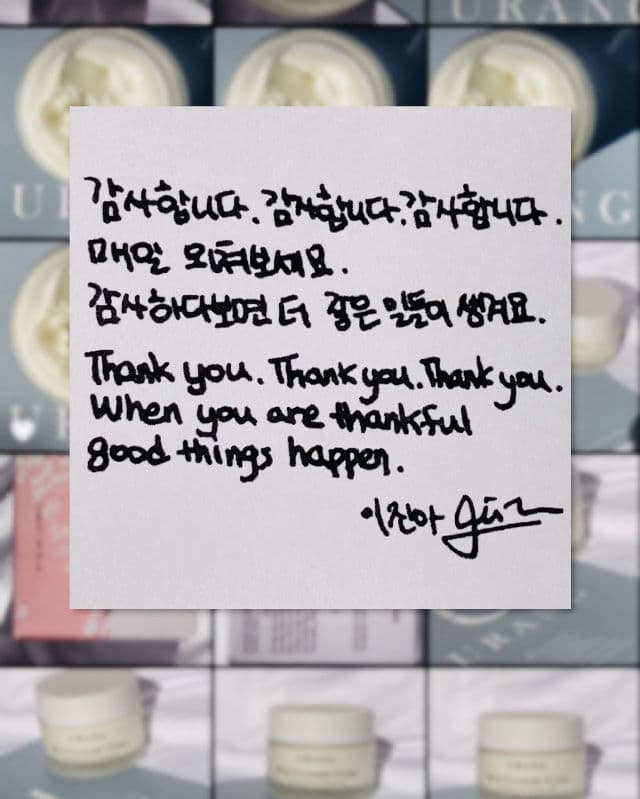 URANG
감사합니다. 감사합니다. 감사합니다.
매일 외쳐보세요.
감사하다보면 더 좋은 일들이 생겨요.
Thank you. Thank you. Thank you.
When you are thankful
good things happen.
이진아
URANG